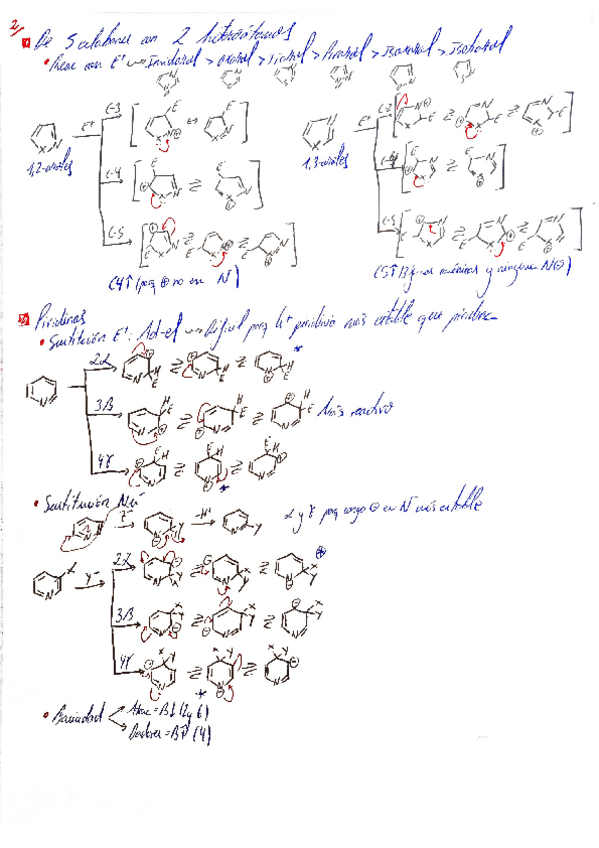 2/
De 5 eslabones con 2 heteroátomos
• Reac con E⁺ → Imidazol > > Tiazol > Pirazol > Isoxazol > Isotiazol
E⁺ C-3 E
1,2-azoles
C-4 E
C-5 E
(4↑ porq ⊕ no en N)
E⁺ C-2
1,3-azoles
C-4 E
C-5 E
(5↑ y ninguna N⊕)
Piridinas
• Sustitución E⁺: Ad-el → Difícil porq piridinio más estable que piridina
2α H E
3β H E Más reactivo
4γ E H
• Sustitución Nu⁻
Y⁻ -H⁻ Y α y γ porq carga ⊖ en N más estable
X Y⁻ 2α X Y
3β X Y
4γ X Y
• Basicidad
= B↓ (2 y 6)
Dadores = B↑ (4)